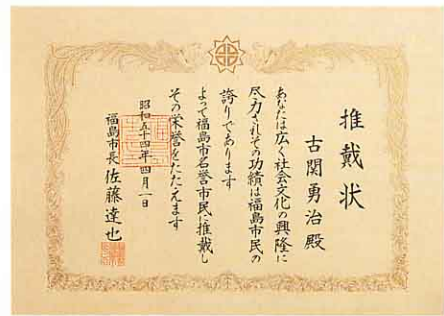 推戴状
古関勇治殿
あなたは広く社会文化の興隆に
尽力されその功績は福島市民の
誇りであります
よって福島市名誉市民に推戴し
その栄誉をたたえます
昭和五十四年四月一日
福島市長 佐藤達也